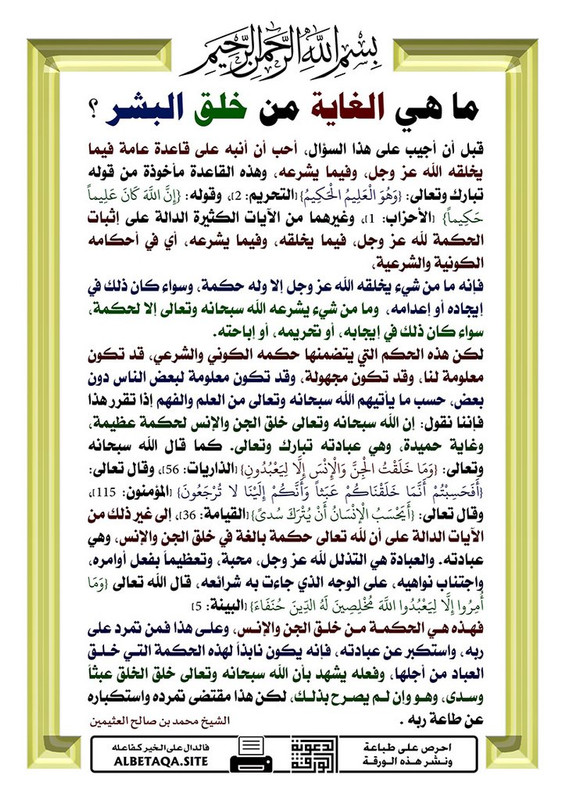 بسم الله الرحمن الرحيم
ما هي الغاية من خلق البشر ؟
قبل أن أجيب على هذا السؤال، أحب أن أنبه على قاعدة عامة فيما
يخلقه الله عز وجل، وفيما يشرعه، وهذه القاعدة مأخوذة من قوله
تبارك وتعالى: {وَهُوَ الْعَلِيمُ الْحَكِيمُ}(التحريم: 2)، وقوله: {إِنَّ اللَّهَ كَانَ عَلِيماً
حَكِيماً} (الأحزاب: 1)، وغيرهما من الآيات الكثيرة الدالة على إثبات
الحكمة لله عز وجل، فيما يخلقه، وفيما يشرعه، أي في أحكامه
الكونية والشرعية،
فإنه ما من شيء يخلقه الله عز وجل إلا وله حكمة، وسواء كان ذلك في
إيجاده أو إعدامه، وما من شيء يشرعه الله سبحانه وتعالى إلا لحكمة،
سواء كان ذلك في إيجابه، أو تحريمه، أو إباحته.
لكن هذه الحكم التي يتضمنها حكمه الكوني والشرعي، قد تكون
معلومة لنا، وقد تكون مجهولة، وقد تكون معلومة لبعض الناس دون
بعض، حسب ما يأتيهم الله سبحانه وتعالى من العلم والفهم إذا تقرر هذا
فإننا نقول: إن الله سبحانه وتعالى خلق الجن والإنس لحكمة عظيمة،
وغاية حميدة، وهي عبادته تبارك وتعالى. كما قال الله سبحانه
وتعالى: {وَمَا خَلَقْتُ الْجِنَّ وَالْإِنْسَ إِلَّا لِيَعْبُدُونِ}(الذاريات: 56)، وقال تعالى:
{أَفَحَسِبْتُمْ أَنَّمَا خَلَقْنَاكُمْ عَبَثاً وَأَنَّكُمْ إِلَيْنَا لا تُرْجَعُونَ}(المؤمنون: 115)،
وقال تعالى: {أَيَحْسَبُ الْإِنْسَانُ أَنْ يُتْرَكَ سُدىً}(القيامة: 36)، إلى غير ذلك من
الآيات الدالة على أن لله تعالى حكمة بالغة في خلق الجن والإنس، وهي
عبادته. والعبادة هي التذلل لله عز وجل، محبة، وتعظيماً بفعل أوامره،
واجتناب نواهيه، على الوجه الذي جاءت به شرائعه، قال الله تعالى {وَمَا
أُمِرُوا إِلَّا لِيَعْبُدُوا اللَّهَ مُخْلِصِينَ لَهُ الدِّينَ حُنَفَاءَ}(البينة: 5)
فهذه هي الحكمة من خلق الجن والإنس، وعلى هذا فمن تمرد على
ربه، واستكبر عن عبادته، فإنه يكون نابذاً لهذه الحكمة التي خلق
العباد من أجلها، وفعله يشهد بأن الله سبحانه وتعالى خلق الخلق عبثاً
وسدى، وهو وإن لم يصرح بذلك، لكن هذا مقتضى تمرده واستكباره
عن طاعة ربه . الشيخ محمد بن صالح العثيمين
احرص على طباعة
ونشر هذه الورقة
الدعوية
الورقة
فالدال على الخير كفاعله
ALBETAQA.SITE